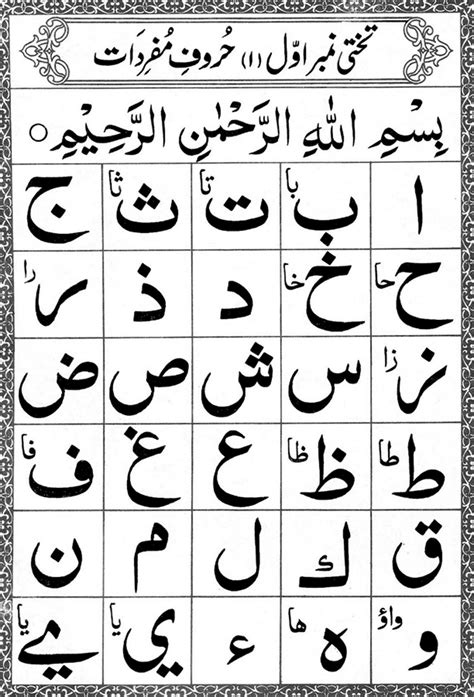 تختی نمبر اوّل (۱) حُروفِ مُفرِدَات
بِسْمِ اللهِ الرَّحْمٰنِ الرَّحِيْمِ ○
ا ب با ت تا ث ثا ج
ح حا خ خا د ذ ر را
ز زا س ش ص ض
ط طا ظ ظا ع غ ف فا
ق ك ل م ن
و واؤ ه ها ء ي يا ے يا